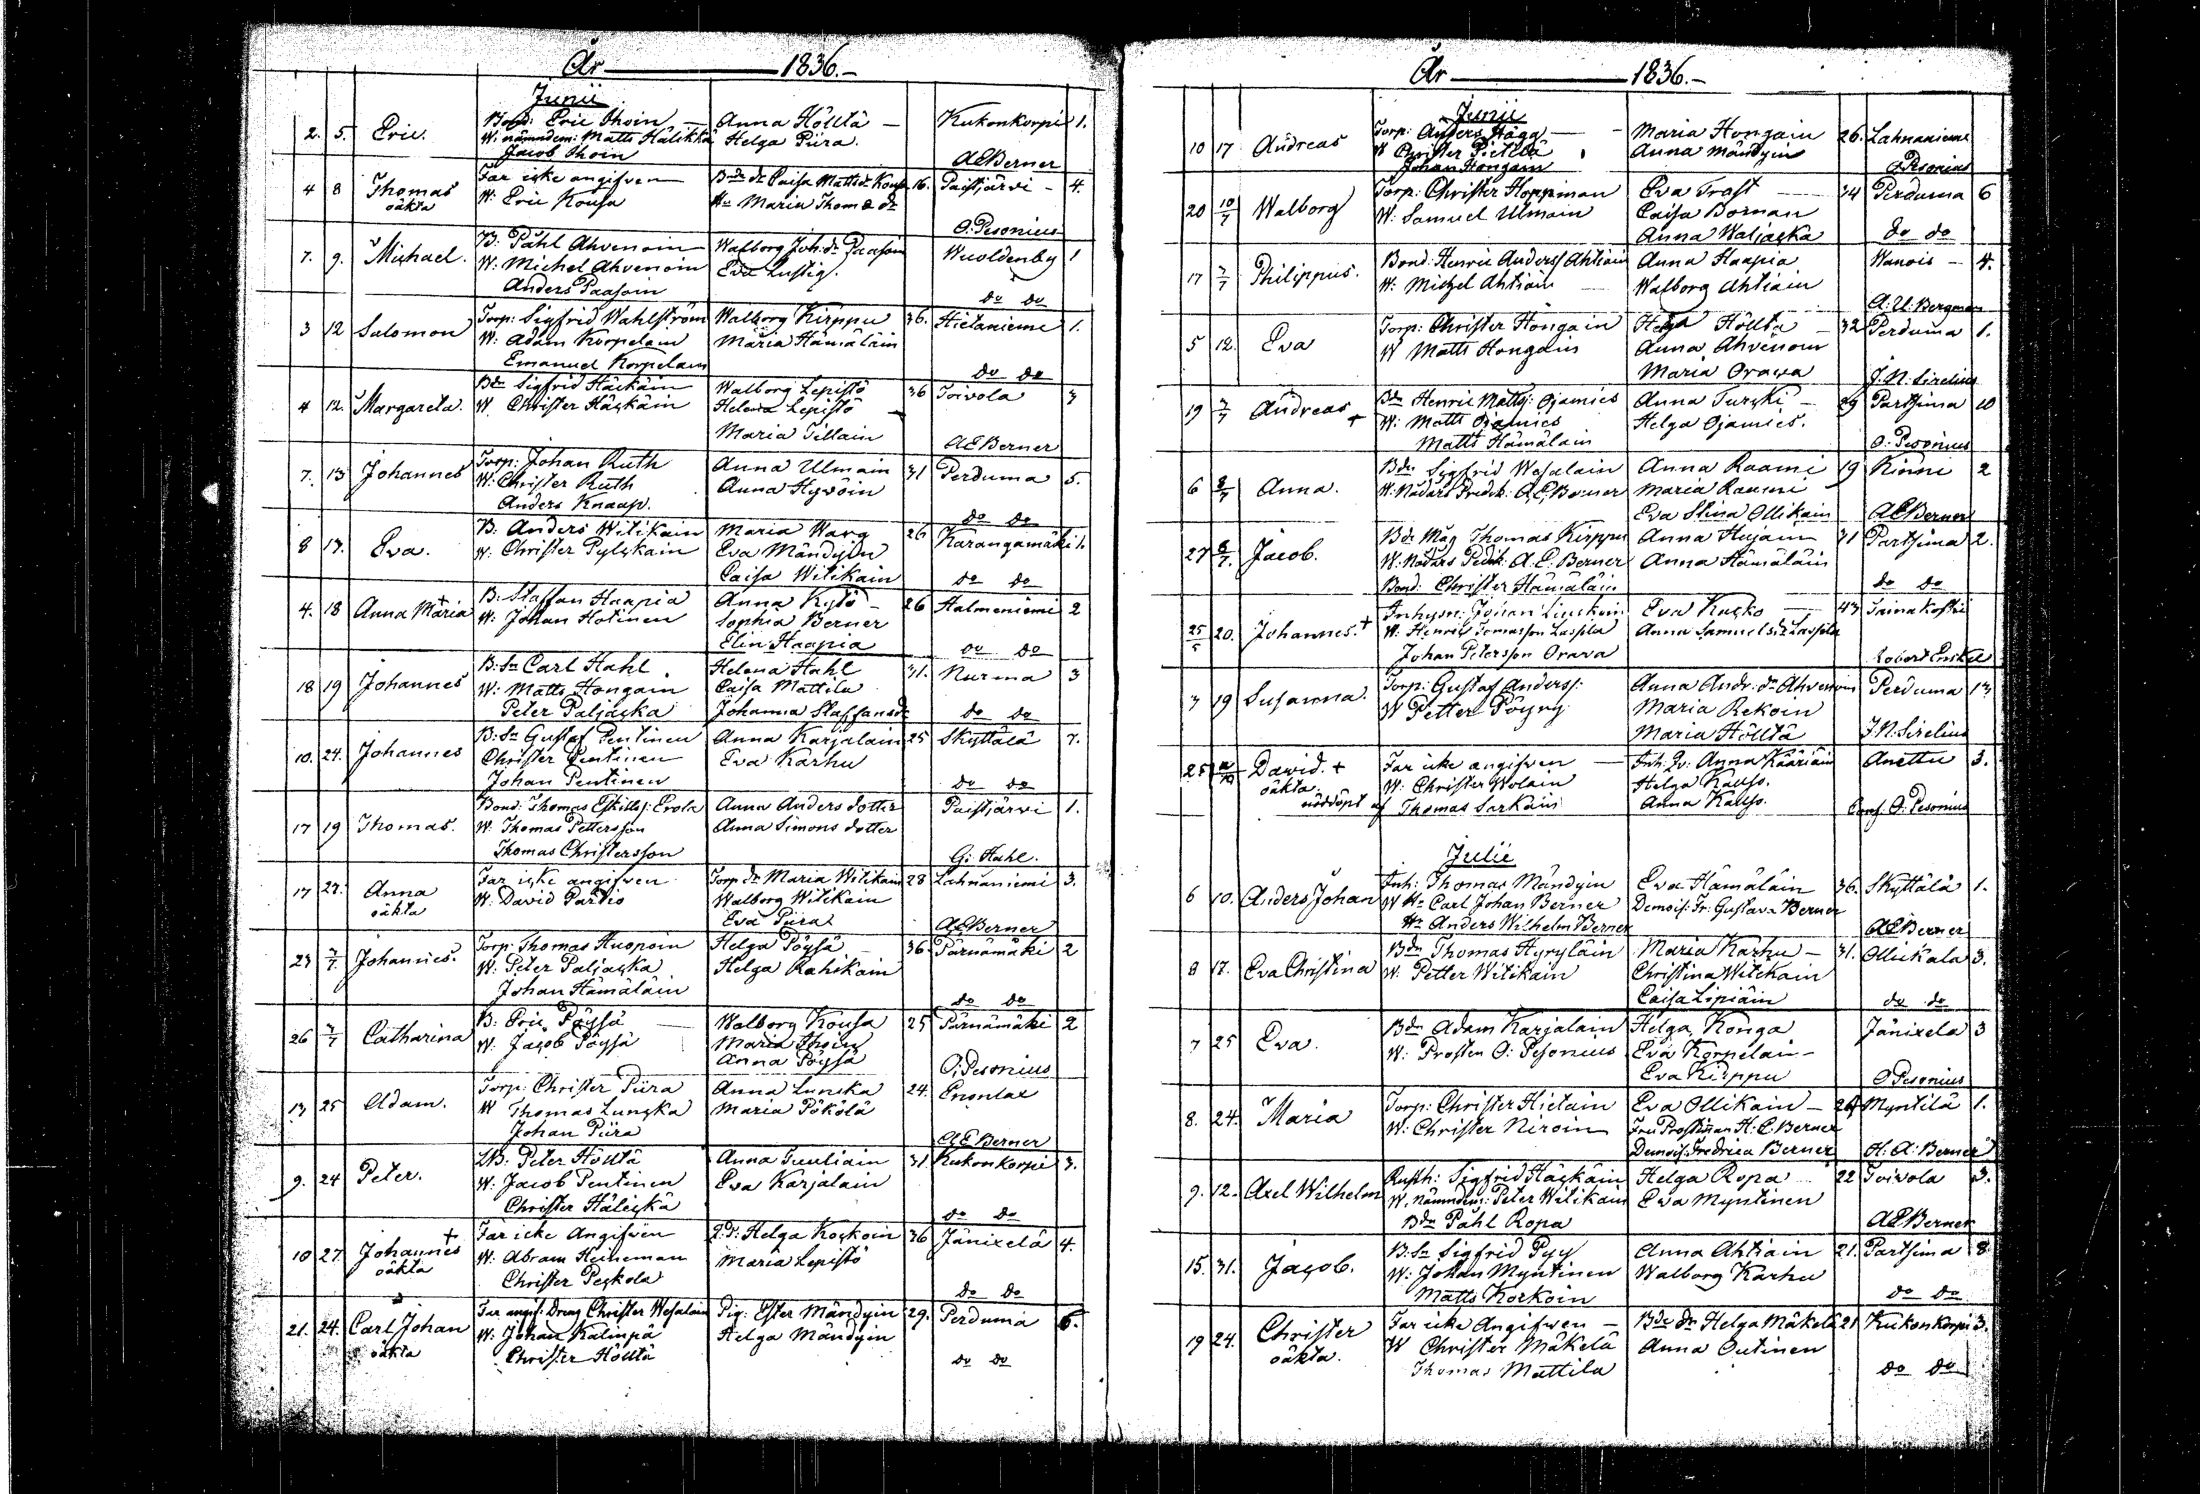 År 1836.
Junii
2. 5. Eric. Bond: Eric Thoin Anna Hölttä Kukonkorpi 1.
W. nämndem: Matts Hälikkä Helga Piira.
Jacob Thoin AEBerner
4 8 Thomas Far icke angifven Bde dr Caisa Mattsdr Kousa 16. Paistjärvi 4.
oäkta W: Eric Kousa Hu Maria Thomædr
O. Pesonius
7. 9. Michael. B: Påhl Ahvenain Walborg Joh: dr Paasoin Wuoldenby 1
W: Michel Ahvenoin Eva Lustig.
Anders Paasoin do do
3 12 Salomon Torp: Sigfrid Wahlström Walborg Kirppu 36. Hietanieme 1.
W: Adam Korpelain Maria Hämäläin
Emanuel Korpelain do do
4 12. Margareta. Bdn Sigfrid Häskäin Walborg Lepistö 36 Toivola 3
W. Christer Häskäin Helena Lepistö
Maria Tillain AEBerner
7. 13 Johannes Torp: Johan Ruth Anna Ulmain 31 Perduma 5.
W: Christer Ruth Anna Hyvöin
Anders Knaap. do do
8 17. Eva. B. Anders Witikain Maria Warg 26 Karangamäki 1.
W. Christer Pylskain Eva Mändyin
Caisa Witikain do do
4. 18 Anna Maria + B: Staffan Haapia Anna Kylö 26 Halmeniemi 2
W: Johan Hotinen Sophia Berner
Elin Haapia do do
18 19 Johannes B: Sn Carl Hahl Helena Hahl 31. Nurma 3
W: Matts Hongain Caisa Mattila
Peter Paljacka Johanna Staffansdr do do
10. 24. Johannes B: Sn Gustaf Pentinen Anna Karjalain 25 Skyttälä 7.
Christer Pentinen Eva Karhu
Johan Pentinen do do
17 19 Thomas. Bond: Thomas Eskillss: Erola Anna Anders dotter Paistjärvi 1.
W. Thomas Pettersson Anna Simons dotter
Thomas Christersson G: Hahl.
17 27. Anna Far icke angifven Torp dr Maria Witikain 28 Lahnaniemi 3.
oäkta W: David Partio Walborg Witikain
Eva Piira AEBerner
23 3/7 Johannes. Torp: Thomas Huopoin Helga Pöysä 36. Pärnämäki 2
W: Peter Paljacka Helga Rahikain
Johan Hämäläin do do
26 3/7 Catharina B: Eric Pöysä Walborg Kousa 25 Pärnämäki 2
W. Jacob Pöysä Maria Thoin
Anna Pöysä O: Pesonius
13 25 Adam. Torp: Christer Piira Anna Lunska 24. Enonlax
W Thomas Lunska Maria Pököla
Johan Piira AEBerner
9. 24 Peter. B: Peter Hölttä Anna Tuuliain 31 Kukonkorpi 3.
W: Jacob Pentinen Eva Karjalain
Christer Häleskä do do
10 27. Johannes + Far icke Angifven Helga Koskoin 36 Jänixelä 4.
oäkta W: Abram Heineman Maria Lepistö
Christer Peskola do do
21. 24. Carl Johan Far angif: Dreng Christer Wesalain Pig: Ester Mändyin 29. Perduma 6.
oäkta W: Johan Kalinpä Helga Mändyin
Christer Hölttä do do
År 1836.
Junii
10 17 Andreas Torp: Anders Häga Maria Hongain 26. Lahnanieme
W Christer Pietilä Anna Mändyin
Johan Hongain O Pesonius
20 10/7 Walborg Torp: Christer Hoppman Eva Trast 34 Perduma 6
W: Samuel Ulmain Caisa Dornan
Anna Waljacka do do
17 3/7 Philippus. Bond: Henric Anderss Ahtiain Anna Haapia Wanois 4.
W: Michel Ahtiain Walborg Ahtiain
A: U: Bergman
5 12. Eva Torp: Christer Hongain Helga Hölttä 32 Perduma 1.
W Matts Hongain Anna Ahvenoin
Maria Orawa J. N: Sirelius
19 3/7 Andreas + Bdn Henric Mattss: Ojamies Anna Turski 29 Partsima 10
W: Matts Ojamies Helga Ojamies.
Matts Hämäläin O: Pesonius
6 3/7 Anna. Bdn Sigfrid Wesalain Anna Raami 19 Kinni 2
W: Nådårs Predik: A: E: Berner Maria Raami
Eva Stina Ollikain AEBerner
27 8/7. Jacob. Bds Måg Thomas Kirppu Anna Hujain 31 Partsima 2.
W: Nådårs Pedik: A: E: Berner Anna Hämäläin
Bond: Christer Hämäläin do do
25/5 20. Johannes. + Inhysn: Johan Liuskoin Eva Kusko 43 Tainakoski
W: Henrik Tomasson Laspla Anna Samuels dr Laspla
Johan Petersson Orava Robert Enskiel
3 19 Susanna. Torp: Gustaf Anderss: Anna Andr: dr Ahvenoin Perduma 13
W Petter Pöyry Maria Rekoin
Maria Hölttä J. N: Sirelius
25 David. + Far icke angifven Inh: Qv: Anna Kääriäin Anettu 3.
oäkta W: Christer Wolain Helga Kauso.
nöddöpt af Thomas Sarkain Anna Kauso. Conf. O: Pesonius
Julii
6 10. Anders Johan Inh: Thomas Mändyin Eva Hämäläin 36. Skyttälä 1.
W Hr Carl Johan Berner Demois: Fr: Gustava Berner
Hr Anders Wilhelm Berner AEBerner
8 17. Eva Christina Bdn Thomas Hyryläin Maria Karhu 31. Ollikala 3.
W. Petter Witikain Christina Witikain
Caisa Lipiäin do do
7 25 Eva. Bdn Adam Karjalain Helga Konga Jänixela 3
W: Prosten O: Pesonius Eva Korpelain
Eva Kirppu O Pesonius
8. 24. Maria Torp: Christer Hietain Eva Ollikain 26 Myntilä 1.
W: Christer Niroin Fru Prostinnan H: C: Berner
Demois: Fredrica Berner H: A: Berner
9. 12. Axel Wilhelm Rusth: Sigfrid Häskäin Helga Ropa 22 Toivola 3.
W. Nämndem: Peter Witikain Eva Myntinen
Bdn Påhl Ropa AEBerner
15. 31. Jacob. B: Sn Sigfrid Pyy Anna Ahtiain 21. Partsima 8
W: Johan Myntinen Walborg Karhu
Matts Korkoin do do
19 24. Christer Far icke Angifven Bde dr Helga Mäkelä 21 Kukonkorpi 3.
oäkta. W Christer Mäkelä Anna Outinen
Thomas Mattila do do